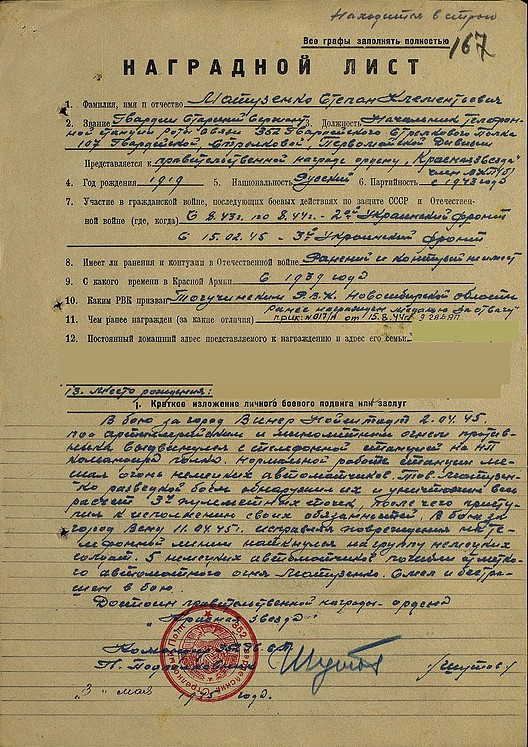 Находится в строю
Все графы заполнять полностью
167
НАГРАДНОЙ ЛИСТ
1. Фамилия, имя и отчество Матузенко Степан Клементьевич
2. Звание Гвардии Старший Сержант 3. Должность Начальник телефон-
ной станции роты связи 352 Гвардейского Стрелкового Полка
107 Гвардейской, Стрелковой, Первомайской Дивизии
Представляется к правительственной награде ордену „Красная Звезда"
4. Год рождения 1919 5. Национальность Русский 6. Партийность член ВКП(б) с 1943 года
7. Участие в гражданской войне, последующих боевых действиях по защите СССР и Отечествен-
ной войне (где, когда) с 8.43г. по 8.44г. - 2ой Украинский фронт
с 15.02.45 - 3й Украинский фронт
8. Имеет ли ранения и контузии в Отечественной войне Ранений и контузий не имеет
9. С какого времени в Красной Армии с 1939 года
10. Каким РВК призван Тогучинским Р.В.К. Новосибирской области
11. Чем ранее награжден (за какие отличия) ранее награжден медалью За отвагу
прик. №017/н от 15.8.44г.
12. Постоянный домашний адрес представляемого к награждению и адрес его семьи
13. Место рождения:
1. Краткое изложение личного боевого подвига или заслуг
В бою за город Винер Нойштадт 2.04.45.
под артиллерийским и минометным огнем против-
ника выдвинулся с телефонной станцией на НП
командира полка. Нормальной работе станции ме-
шал огонь немецких автоматчиков. Тов. Матузен-
ко разведкой боем обнаружил их и уничтожил весь
расчет 3х пулеметных точек, после чего присту-
пил к исполнению своих обязанностей. В бою за
город Вену 11.04.45г. исправляя повреждения на те-
лефонной линии наткнулся на группу немецких
солдат. 5 немецких автоматчиков погибли от метко-
го автоматного огня Матузенко. Смел и бесстра-
шен в бою.
Достоин правительственной награды - ордена
„Красная Звезда"
Командир 352
П. Подполковник /Шутов/
„3" мая 1945 года.